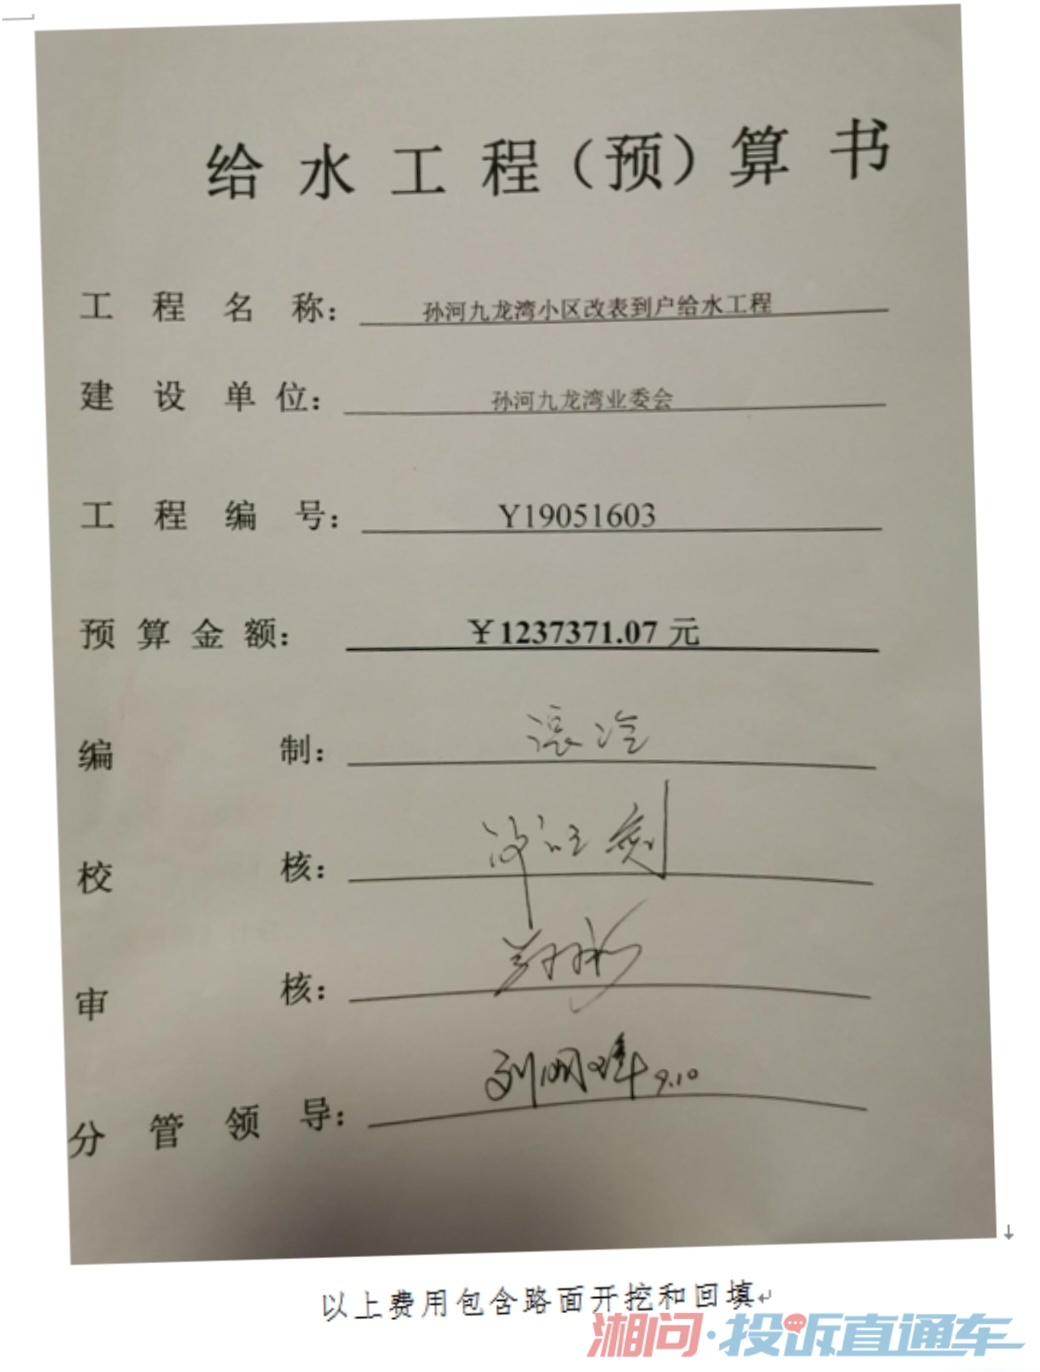 给水工程（预）算书
工程名称：孙河九龙湾小区改表到户给水工程
建设单位：孙河九龙湾业委会
工程编号：Y19051603
预算金额：￥1237371.07元
编制：
校核：
审核：
分管领导：9.10
以上费用包含路面开挖和回填
湘问·投诉直通车